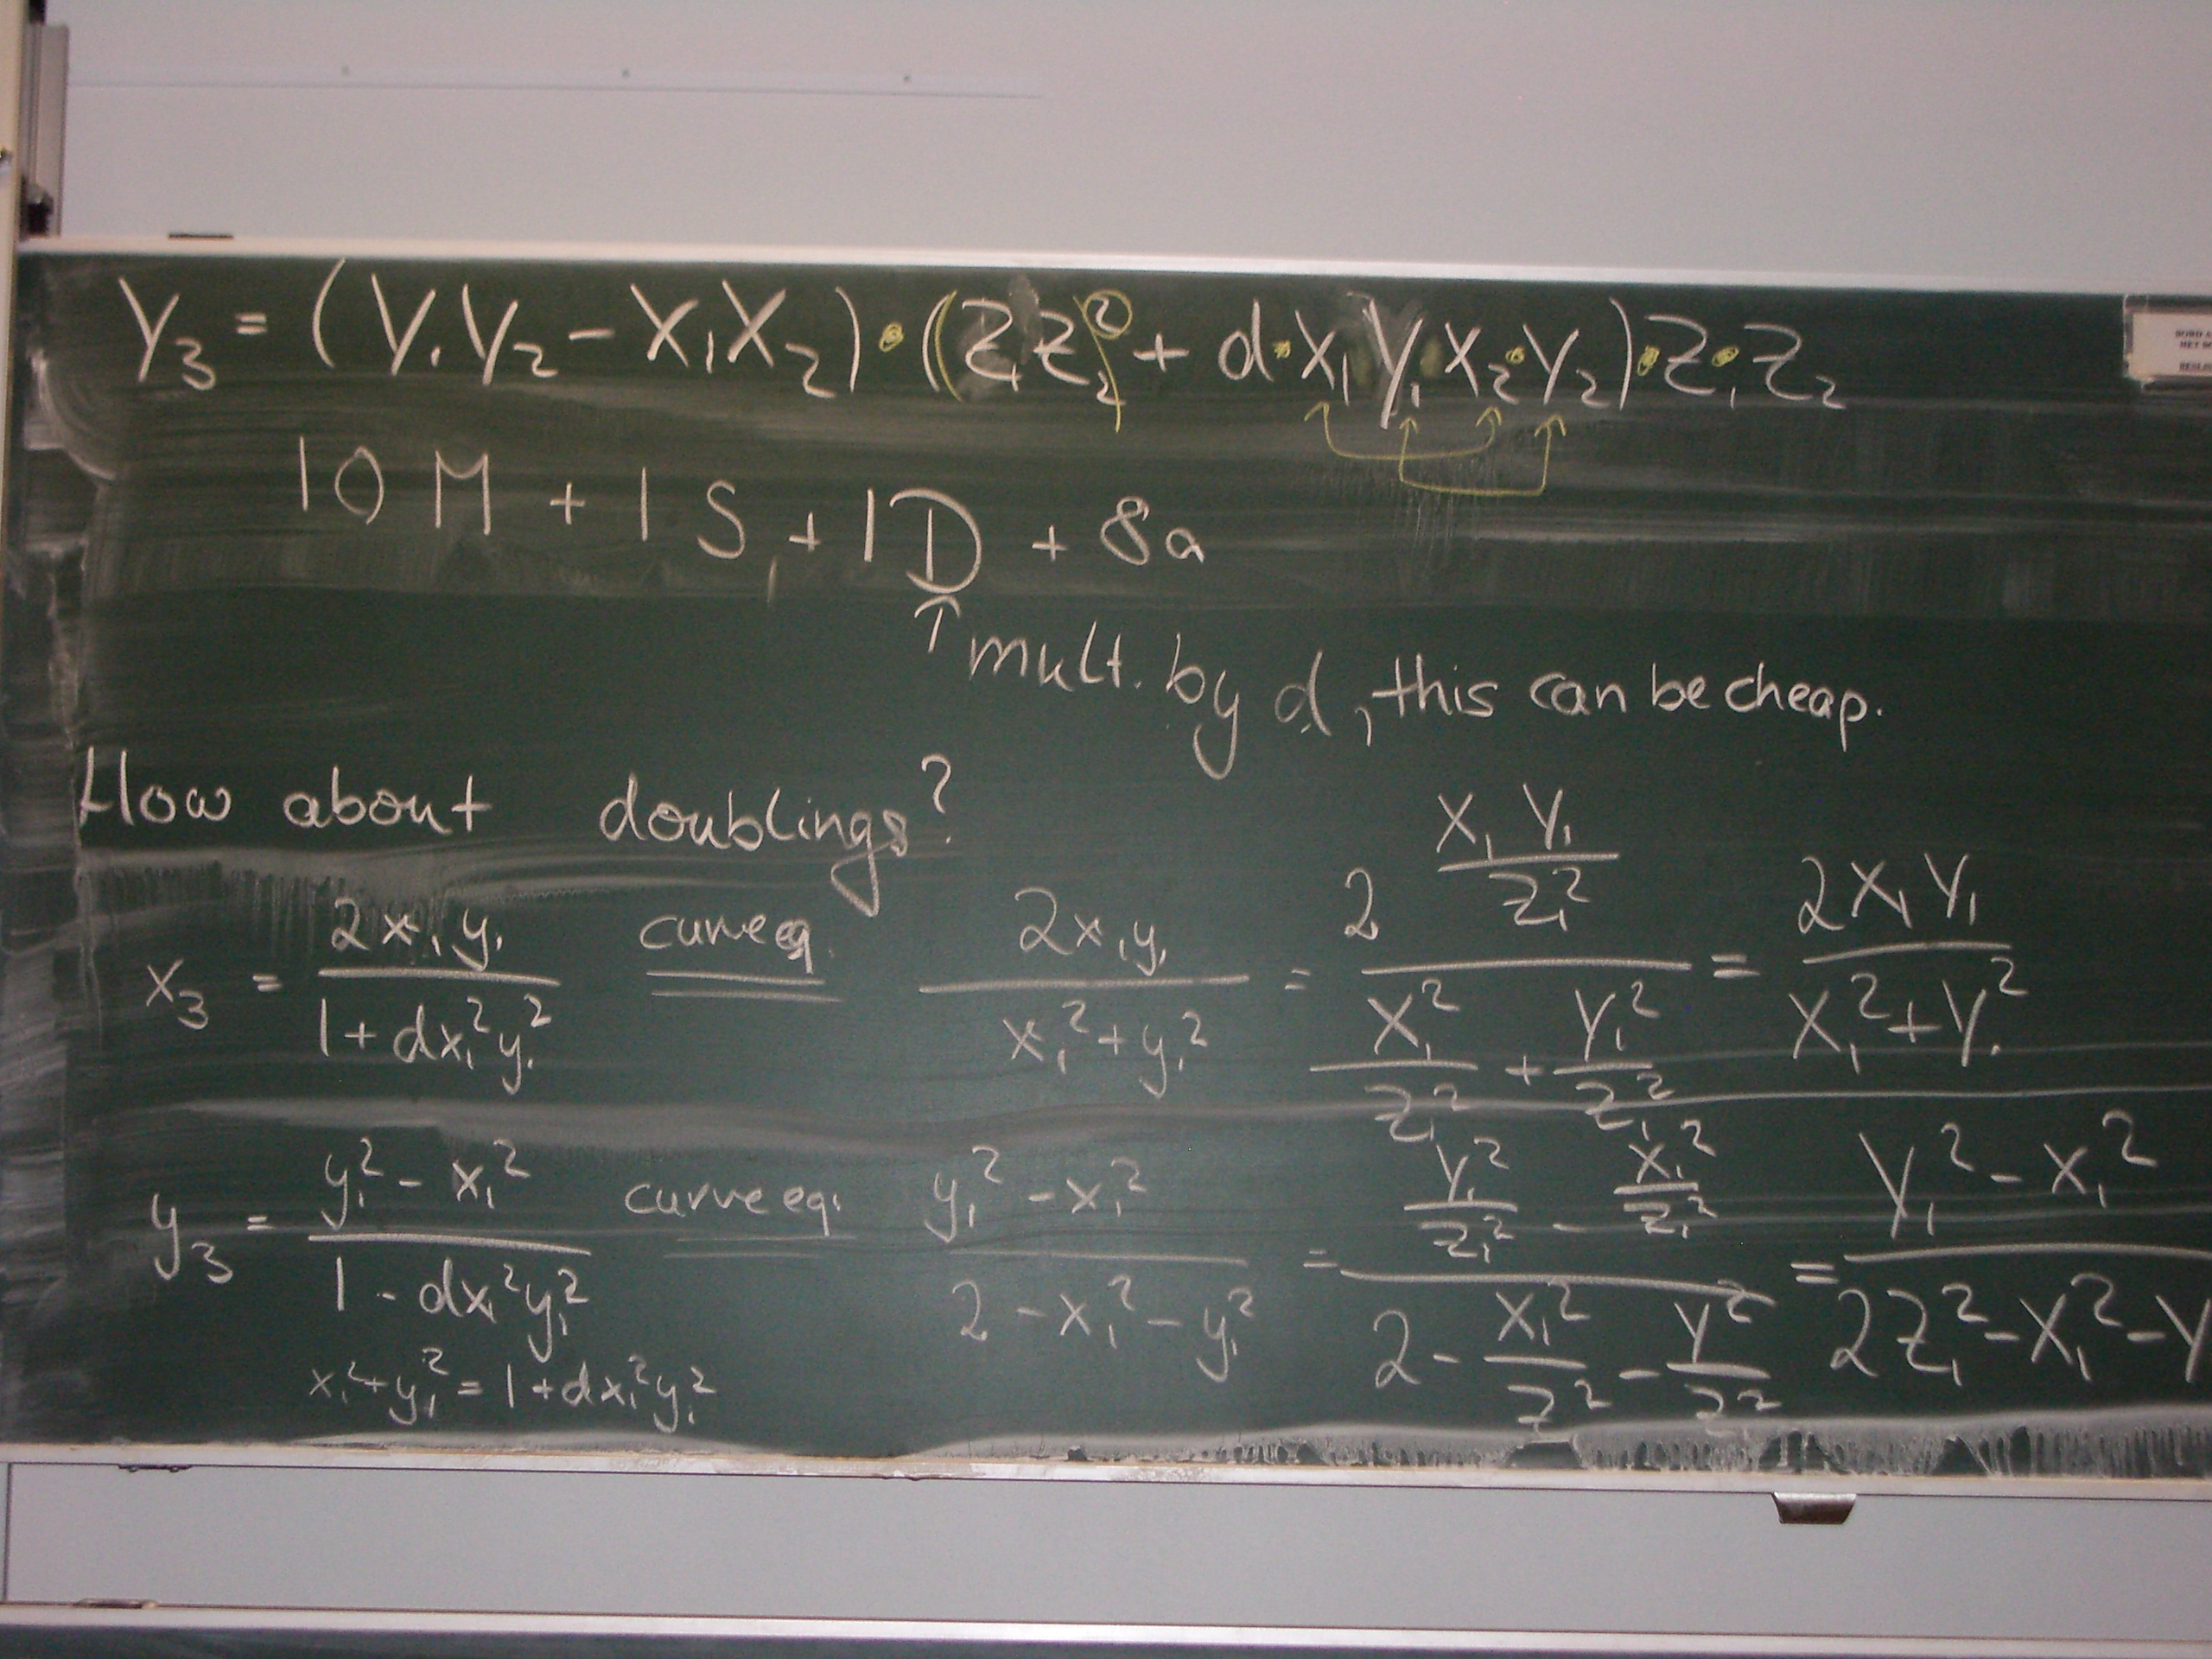 Y₃ = (Y₁Y₂ - X₁X₂)·(Z₁Z₂)² + d·X₁Y₁X₂·Y₂)·Z₁·Z₂
10M + 1S, + 1D + 8a
↑ mult. by d, this can be cheap.
How about doublings?
x₃ = 2x₁y₁ / (1+dx₁²y₁²) = (curve eq.) 2x₁y₁ / (x₁²+y₁²) = 2 (X₁Y₁/Z₁²) / (X₁²/Z₁² + Y₁²/Z₁²) = 2X₁Y₁ / (X₁²+Y₁²)
y₃ = (y₁² - x₁²) / (1 - dx₁²y₁²) = (curve eq.) (y₁² - x₁²) / (2 - x₁² - y₁²) = (Y₁²/Z₁² - X₁²/Z₁²) / (2 - X₁²/Z² - Y²/Z²) = (Y₁² - X₁²) / (2Z₁² - X₁² - Y
x₁²+y₁² = 1+dx₁²y₁²